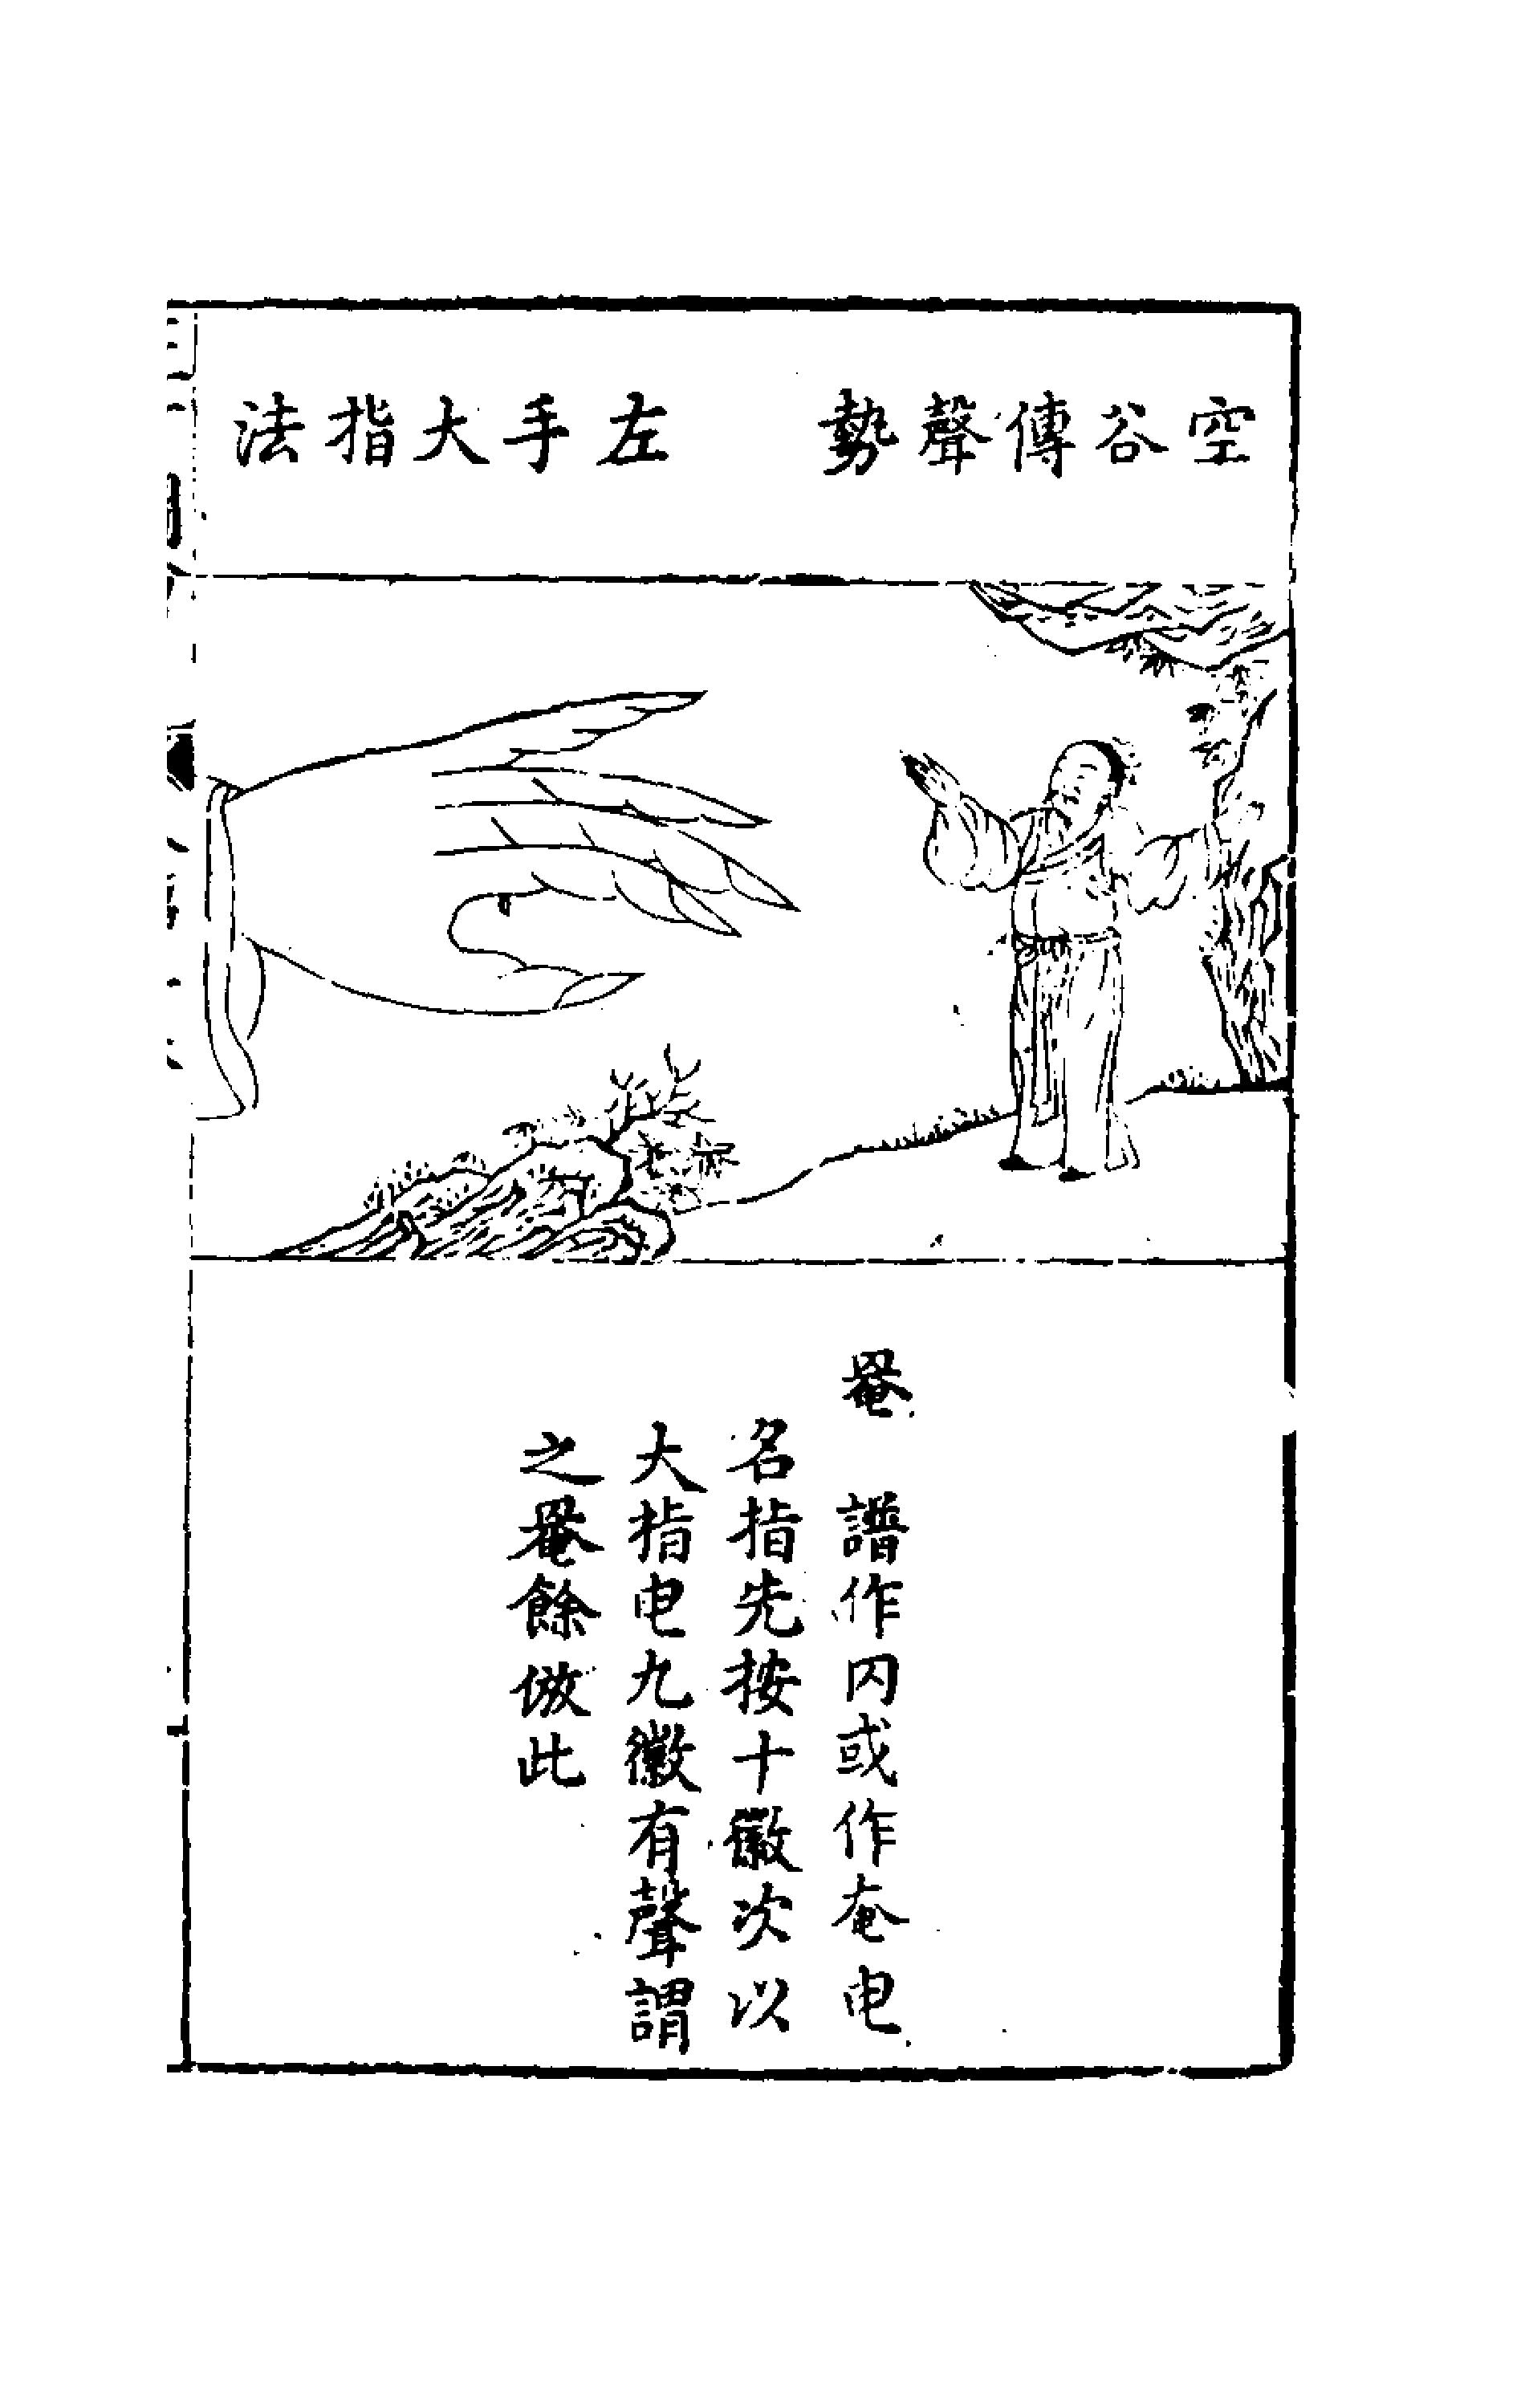 空谷傳聲勢　左手大指法
罨　譜作𠕁或作奄电
名指先按十徽次以
大指电九徽有聲謂
之罨餘倣此